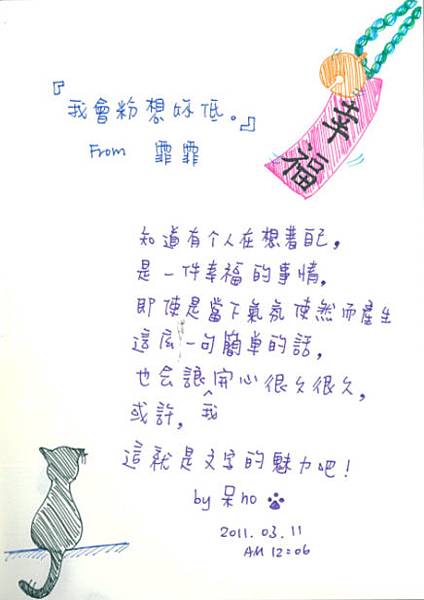 『我會粉想妳低。』
From 霏霏
幸福
知道有个人在想著自己，
是一件幸福的事情，
即使是當下氣氛使然而產生
這広一句簡單的話，
也会讓我開心很久很久，
或許，
這就是文字的魅力吧！
by 呆no
2011.03.11
AM 12:06